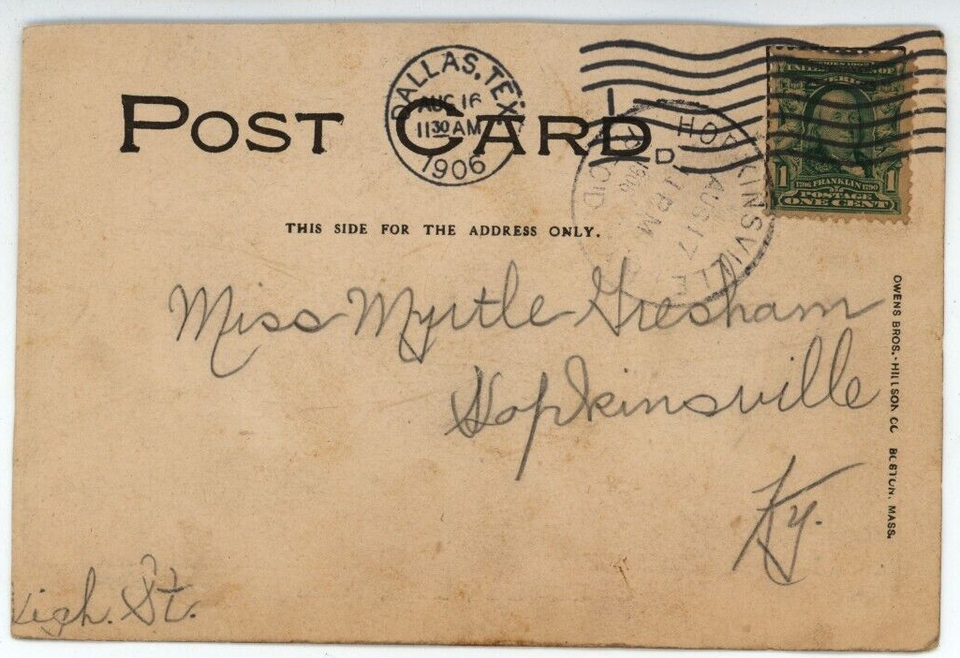 POST CARD
DALLAS, TEX.
AUG 16
11 30 AM
1906
1
HOPKINSVILLE
AUG 17
1 PM
1906
REC'D.
UNITED STATES OF
1 1706 FRANKLIN 1790 1
POSTAGE
ONE CENT
THIS SIDE FOR THE ADDRESS ONLY.
Miss Myrtle Gresham
Hopkinsville
Ky.
High. St.
OWENS BROS.-HILLSON CO BOSTON, MASS.